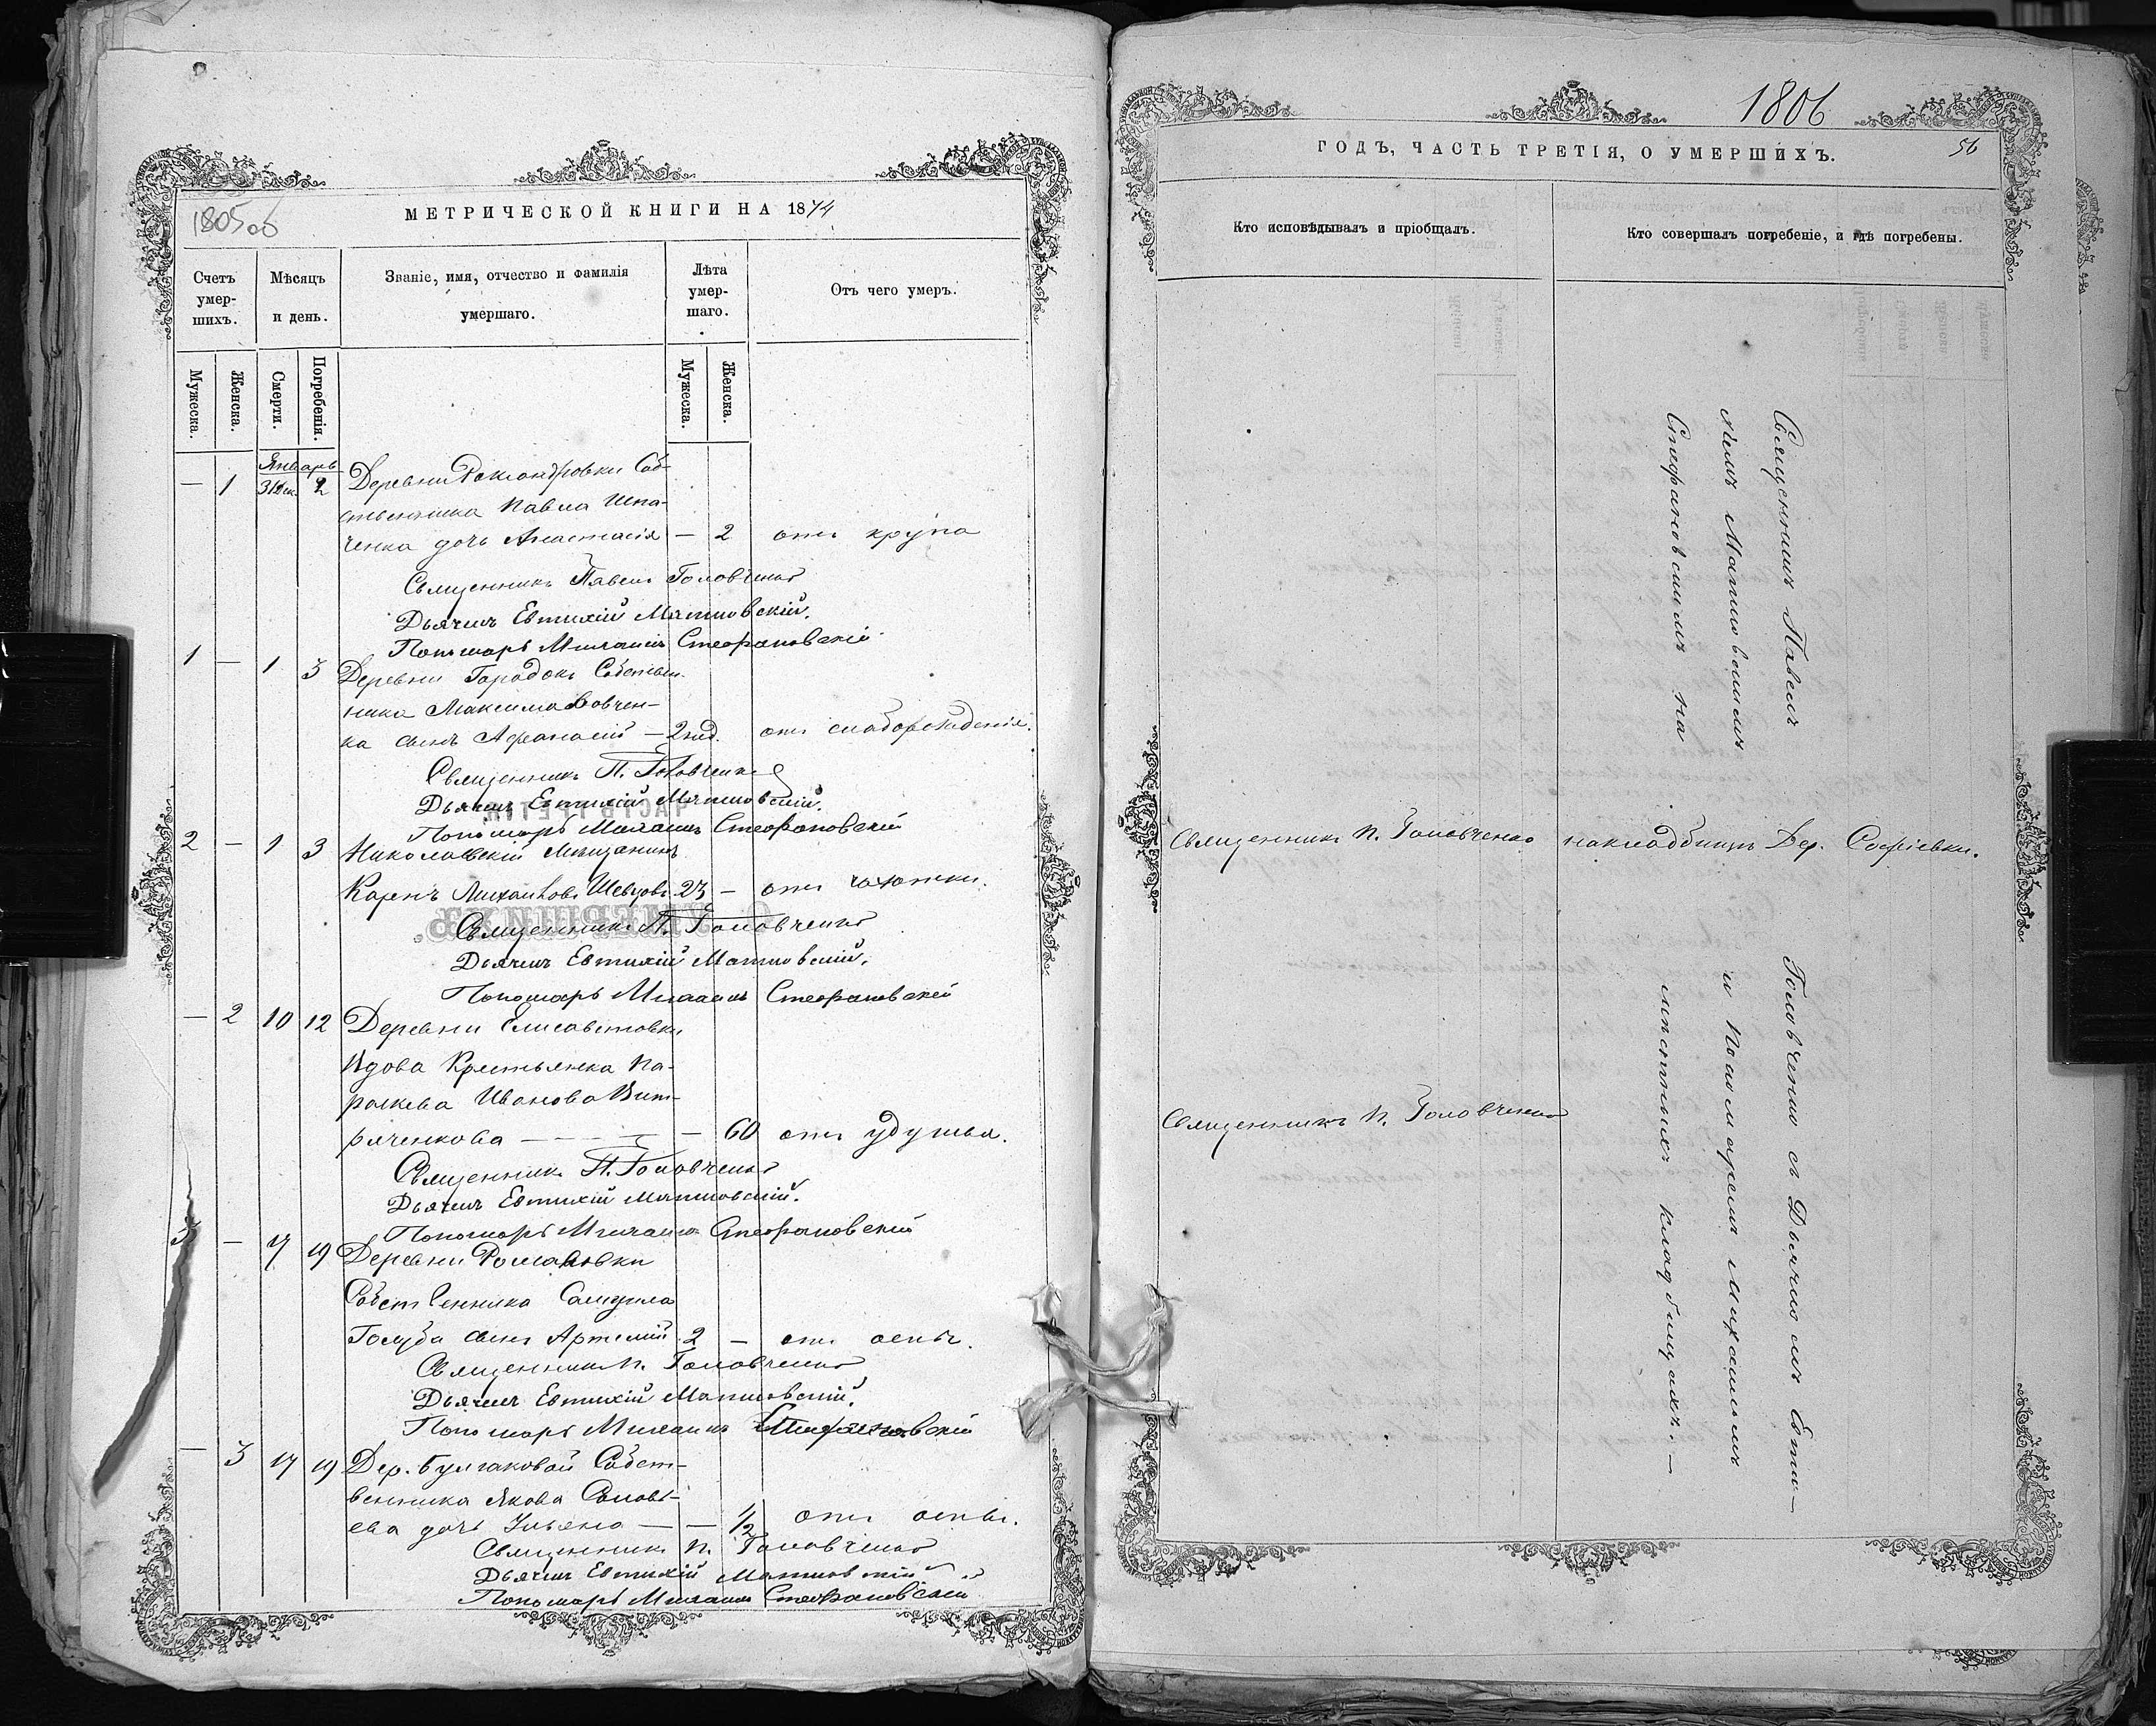 1805 об
МЕТРИЧЕСКОЙ КНИГИ НА 1874
Счетъ умер-шихъ.
Мѣсяцъ и день.
Званіе, имя, отчество и фамилія умершаго.
Лѣта умер-шаго.
Отъ чего умеръ.
Мужеска.
Женска.
Смерти.
Погребенія.
Мужеска.
Женска.
Январь
— 1 31 Дек. 2 Деревни Соб-
ственника Павла
ченка дочь Анастасія — 2 отъ крупа
Священникъ Павелъ Головченко
Дьячекъ Евтихій Матковскій.
Пономарь Михаилъ Стефановскій
1 — 1 3 Деревни Городокъ Собствен-
ника Максима Вовчен-
ка сынъ Афанасій — 2 нед. отъ слаборожденія.
Священникъ П. Головченко
Дьячекъ Евтихій Матковскій.
Пономарь Михаилъ Стефановскій
2 — 1 3 Николаевскій Мѣщанинъ
Михайловъ Шевцовъ 23 — отъ чахотки.
Священникъ П. Головченко
Дьячекъ Евтихій Матковскій.
Пономарь Михаилъ Стефановскій
— 2 10 12 Деревни Елисаветовки
Вдова Крестьянка Па-
раскева Иванова Вит-
ряченкова — — 60 отъ удушья.
Священникъ П. Головченко
Дьячекъ Евтихій Матковскій.
Пономарь Михаилъ Стефановскій
3 — 17 19 Деревни Романовки
Собственника Самуила
Голуба сынъ Артемій 2 — отъ оспы.
Священникъ П. Головченко
Дьячекъ Евтихій Матковскій.
Пономарь Михаилъ Стефановскій
— 3 17 19 Дер. Булгаковой Собст-
венника Якова Соловь-
ева дочь Ульяна — — 1/2 отъ оспы.
Священникъ П. Головченко
Дьячекъ Евтихій Матковскій
Пономарь Михаилъ Стефановскій
1806
56
ГОДЪ, ЧАСТЬ ТРЕТІЯ, О УМЕРШИХЪ.
Кто исповѣдывалъ и пріобщалъ.
Кто совершалъ погребеніе, и гдѣ погребены.
Священникъ П. Головченко
накладбищѣ Дер. Софіевки.
Священникъ П. Головченко
Священникъ Павелъ Головченко съ Дьячкомъ Евти-
хіемъ Матковскимъ и Пономаремъ Михаиломъ
Стефановскимъ на мѣстныхъ кладбищахъ. —